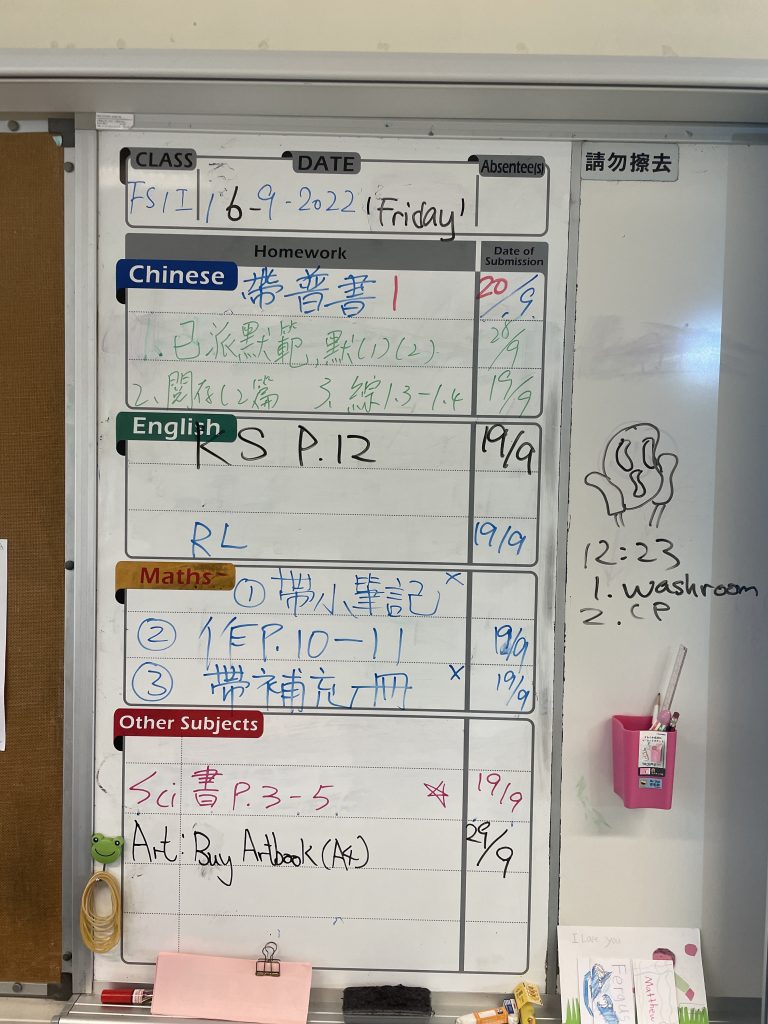 CLASS DATE Absentee(s)
請勿擦去
16-9-2022 'Friday'
Homework Date of Submission
Chinese 帶普書 1 20/9
1. 已派默範, 默(1)(2) 28/9
2. 3. 綜1.3-1.4 19/9
English KS P.12 19/9
RL 19/9
Maths ① 帶小筆記 x
② 作P.10-11 19/9
③ 帶補充一冊 x 19/9
Other Subjects
Sci 書 P.3-5 19/9
Art: Buy Artbook (A4) 29/9
12:23
1. washroom
2. CP
I Love you
Matthew